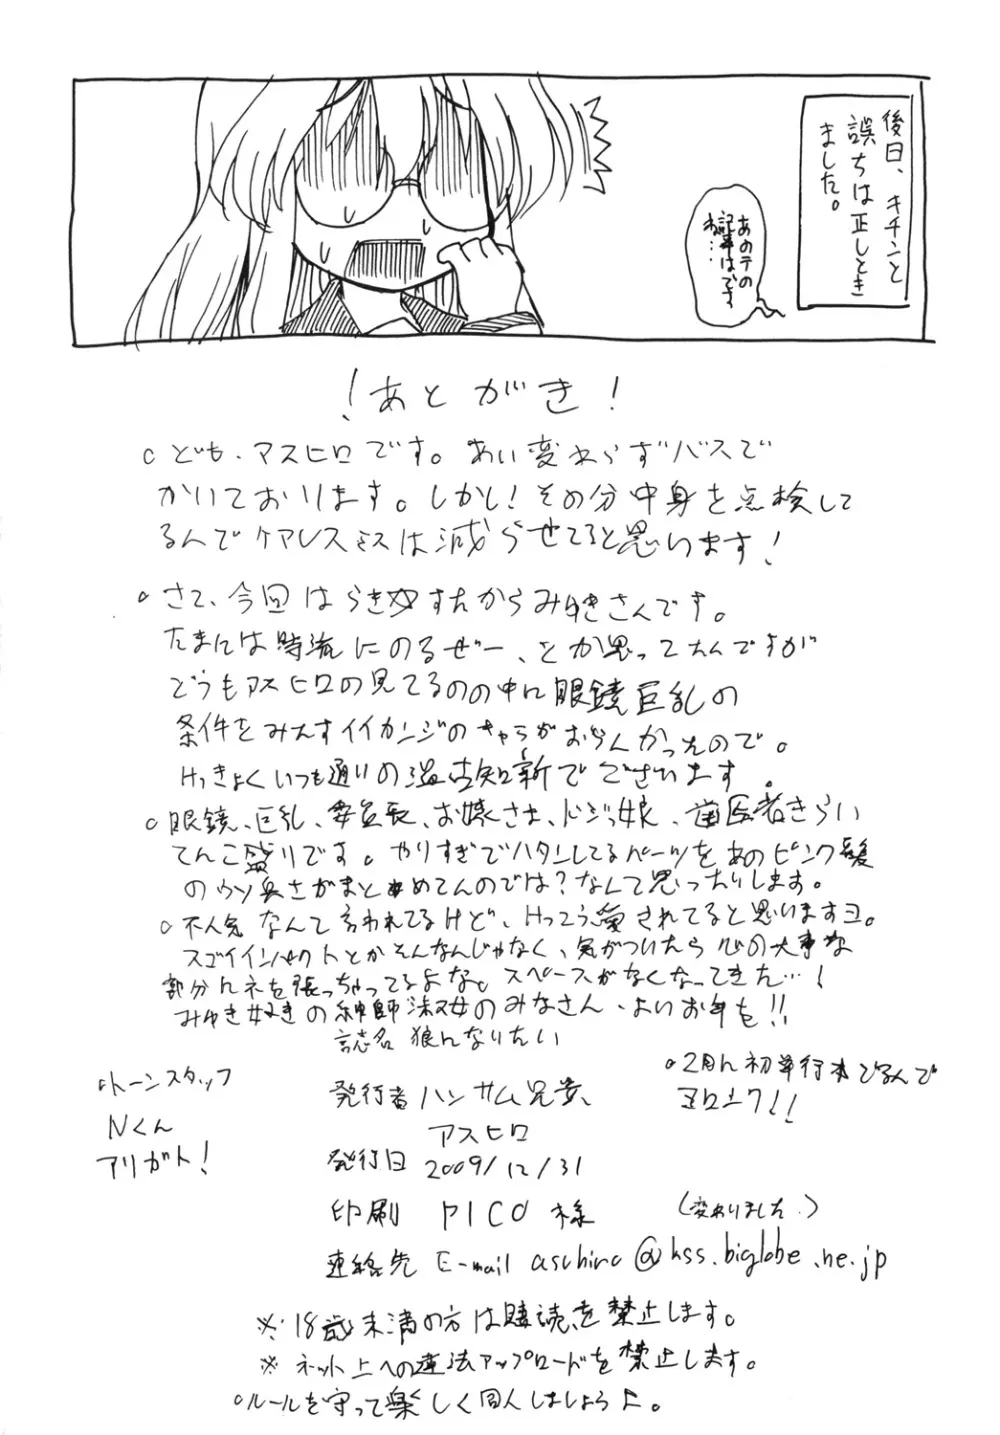 後日、キチンと
誤ちは正しとき
ました。
あのテの
記事はです
ね…
！あとがき！
○ども、アスヒロです。あい変わらずバスで
かいております。しかし！その分中身を点検して
るんでケアレスミスは減らせてると思います！
○さて、今回はらき☆すたからみゆきさんです。
たまには時流にのるぜー、とか思ってたんですが
どうもアスヒロの見てるのの中に眼鏡巨乳の
条件をみたすイイカンジのキャラがおらんかったので。
けっきょくいつも通りの温古知新でございます。
○眼鏡、巨乳、委員長、お嬢さま、ドジっ娘、歯医者きらい
てんこ盛りです。やりすぎでハタンしてるパーツをあのピンク髪
のウソ臭さがまとめてんのでは？なんて思ったりします。
○不人気なんて言われてるけど、けっこう愛されてると思いますヨ。
スゴイインパクトとかそんなんじゃなく、気がついたら心の大事な
部分にネを張っちゃってるよな。スペースがなくなってきた…！
みゆき好きの紳師淑女のみなさん、よいお年を!!
誌名 狼になりたい
○トーンスタッフ
Nくん
アリガト！
発行者 ハンサム兄貴、
アスヒロ
○2月に初単行本でるんで
ヨロシク!!
発行日 2009/12/31
印刷 PICO 様
(変わりました。)
連絡先 E-mail asuhiro@kss.biglobe.ne.jp
※18歳未満の方は購読を禁止します。
※ネット上への違法アップロードを禁止します。
○ルールを守って楽しく同人しましょうよ。